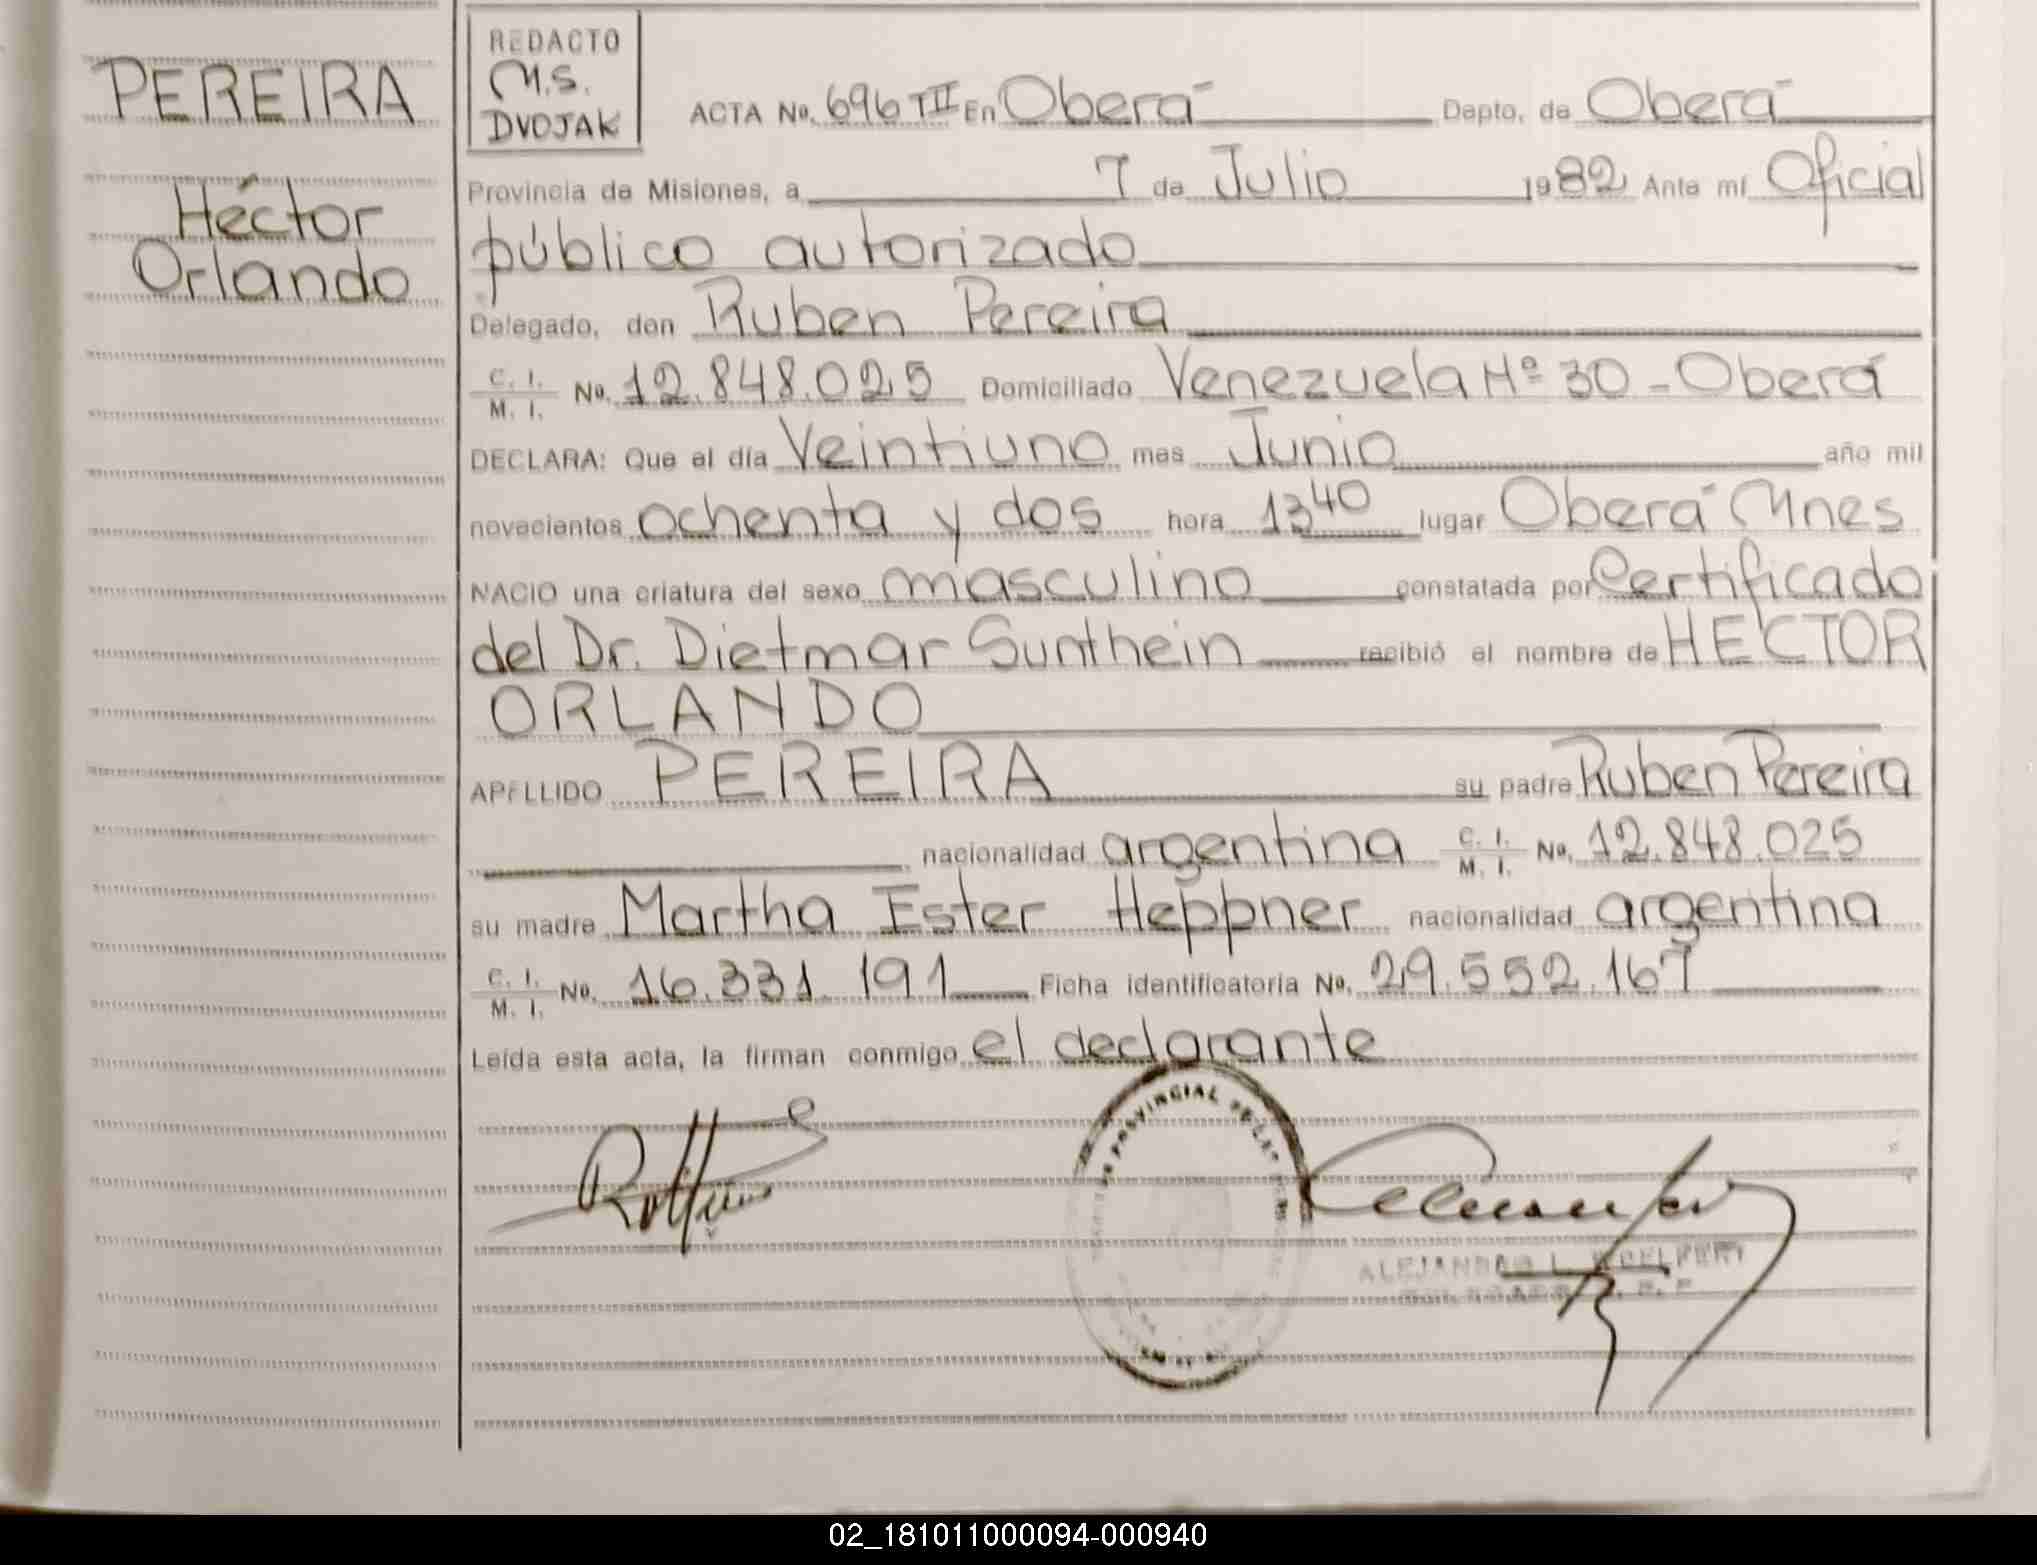 PEREIRA
Héctor
Orlando
REDACTO
M.S.
DVOJAK
ACTA No. 696 TII En Oberá Depto. de Oberá
Provincia de Misiones, a 7 de Julio 1982 Ante mí Oficial
público autorizado
Delegado, don Ruben Pereira
C. I. / M. I. No. 12.848.025 Domiciliado Venezuela Nº 30 - Oberá
DECLARA: Que el día Veintiuno mes Junio año mil
novecientos ochenta y dos hora 13⁴⁰ lugar Oberá Mnes
NACIO una criatura del sexo masculino constatada por Certificado
del Dr. Dietmar Sunthein recibió el nombre de HECTOR
ORLANDO
APELLIDO PEREIRA su padre Ruben Pereira
nacionalidad argentina C. I. / M. I. No. 12.848.025
su madre Martha Ester Heppner nacionalidad argentina
C. I. / M. I. No. 16.331.191 Ficha identificatoria No. 29.552.167
Leída esta acta, la firman conmigo el declarante
PROVINCIAL DE LAS
ALEJANDRO L.
02_181011000094-000940